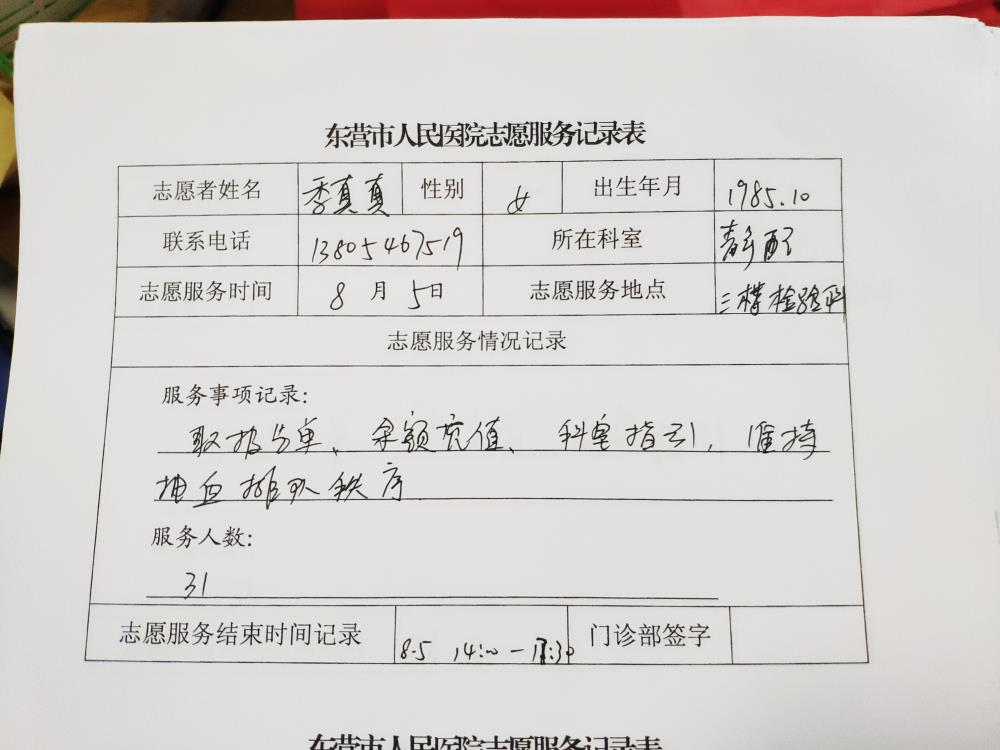 东营市人民医院志愿服务记录表
志愿者姓名 季真真 性别 女 出生年月 1985.10
联系电话 13805467519 所在科室 静配
志愿服务时间 8月5日 志愿服务地点 三楼检验科
志愿服务情况记录
服务事项记录:
取报告单、余额充值、科室指引,维持
抽血排队秩序
服务人数:
31
志愿服务结束时间记录 8.5 14:00-17:30 门诊部签字
东营市人民医院志愿服务记录表